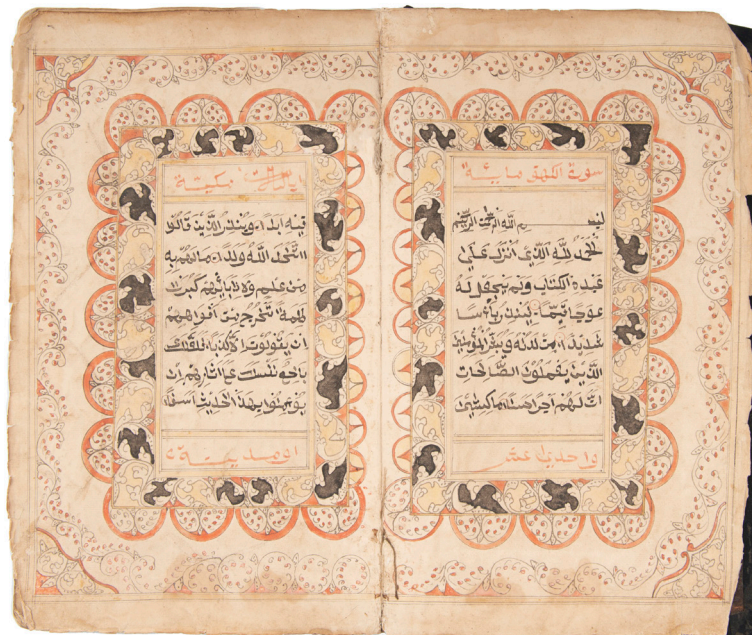 سورة الكهف مايئة
بسم الله الرحمن الرحيم
الحمد لله الذي انزل على
عبده الكتاب ولم يجعل له
عوجا قيما لينذر باسا
شديدا من لدنه ويبشر المؤمنين
الذين يعملون الصالحات
ان لهم اجرا حسنا ماكثين
واحدى عشر
ايات مكية
فيه ابدا وينذر الذين قالوا
اتخذ الله ولدا ما لهم به
من علم ولا لابائهم كبرت
كلمة تخرج من افواههم
ان يقولون الا كذبا فلعلك
باخع نفسك على اثارهم ان
يؤمنوا بهذا الحديث اسفا